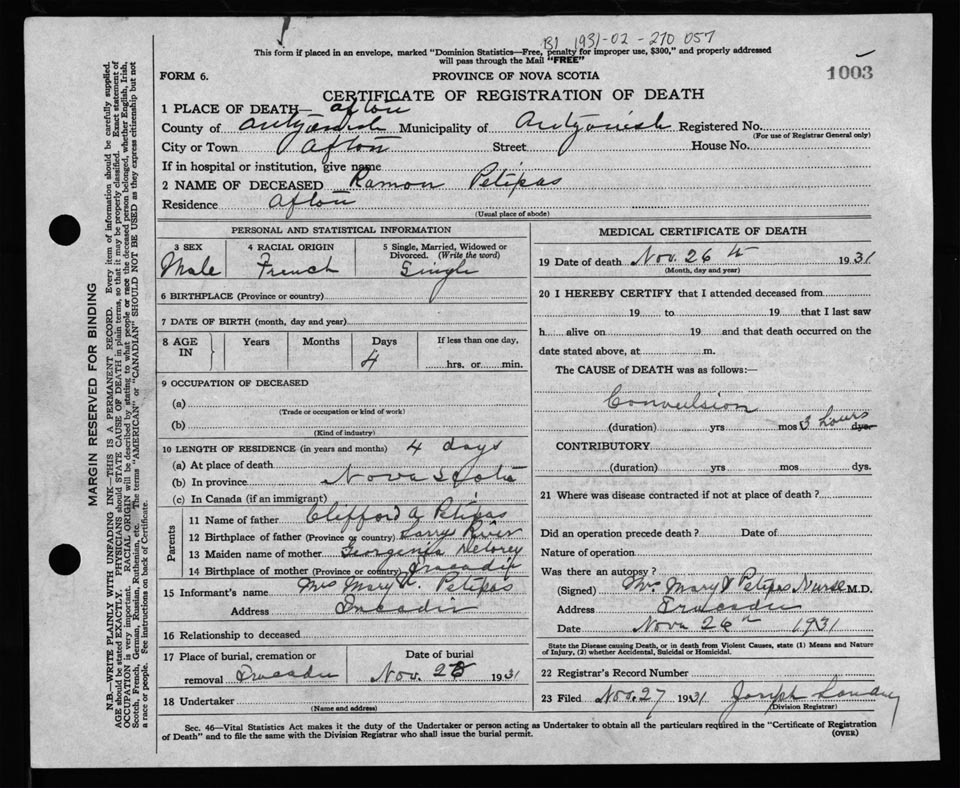 B1 1931-02-270057
This form if placed in an envelope, marked "Dominion Statistics—Free, penalty for improper use, $300," and properly addressed
will pass through the Mail "FREE"
1003
FORM 6. PROVINCE OF NOVA SCOTIA
CERTIFICATE OF REGISTRATION OF DEATH
1 PLACE OF DEATH— Afton
County of Antigonish Municipality of Antigonish Registered No.
(For use of Registrar General only)
City or Town Afton Street House No.
If in hospital or institution, give name
2 NAME OF DECEASED Ramon Petipas
Residence Afton
(Usual place of abode)
PERSONAL AND STATISTICAL INFORMATION
3 SEX 4 RACIAL ORIGIN 5 Single, Married, Widowed or Divorced. (Write the word)
Male French Single
6 BIRTHPLACE (Province or country)
7 DATE OF BIRTH (month, day and year)
8 AGE IN Years Months Days If less than one day,
4 hrs. or min.
9 OCCUPATION OF DECEASED
(a)
(Trade or occupation or kind of work)
(b)
(Kind of industry)
10 LENGTH OF RESIDENCE (in years and months) 4 days
(a) At place of death
(b) In province Nova Scotia
(c) In Canada (if an immigrant)
Parents
11 Name of father Clifford A Petipas
12 Birthplace of father (Province or country) River
13 Maiden name of mother Georgenia Delorey
14 Birthplace of mother (Province or country) Tracadie
15 Informant's name Mrs Mary Petipas
Address Tracadie
16 Relationship to deceased
17 Place of burial, cremation or Date of burial
removal Tracadie Nov. 1931
18 Undertaker
(Name and address)
MEDICAL CERTIFICATE OF DEATH
19 Date of death Nov. 26th 1931
(Month, day and year)
20 I HEREBY CERTIFY that I attended deceased from
19 to 19 that I last saw
h alive on 19 and that death occurred on the
date stated above, at m.
The CAUSE of DEATH was as follows:—
Convulsion
(duration) yrs mos 3 hours dys.
CONTRIBUTORY
(duration) yrs mos dys.
21 Where was disease contracted if not at place of death?
Did an operation precede death? Date of
Nature of operation
Was there an autopsy?
(Signed) Mrs Mary Petipas Nurse M.D.
Address Tracadie
Date Nov 26th 1931
State the Disease causing Death, or in death from Violent Causes, state (1) Means and Nature
of Injury, (2) whether Accidental, Suicidal or Homicidal.
22 Registrar's Record Number
23 Filed Nov. 27 1931 Joseph
(Division Registrar)
Sec. 46—Vital Statistics Act makes it the duty of the Undertaker or person acting as Undertaker to obtain all the particulars required in the "Certificate of Registration
of Death" and to file the same with the Division Registrar who shall issue the burial permit.
(OVER)
MARGIN RESERVED FOR BINDING
N.B.—WRITE PLAINLY WITH UNFADING INK—THIS IS A PERMANENT RECORD. Every item of information should be carefully supplied.
AGE should be stated EXACTLY. PHYSICIANS should STATE CAUSE OF DEATH in plain terms, so that it may be properly classified. Exact statement of
OCCUPATION is very important. RACIAL ORIGIN will be described by stating to what people or race the deceased person belonged, whether English, Irish,
Scotch, French, German, Russian, Ruthenian, etc. The terms "AMERICAN" or "CANADIAN" SHOULD NOT BE USED as they express citizenship but not
a race or people. See instructions on back of Certificate.